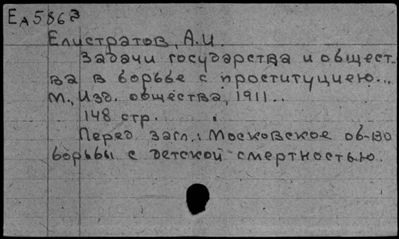 ЕА5863
Елистратов, А.И.
Задачи государства и общест-
ва в борьбе с проституцией...
М., Изд. общества, 1911..
148 стр.
Перед загл.: Московское об-во
борьбы с детской смертностью.